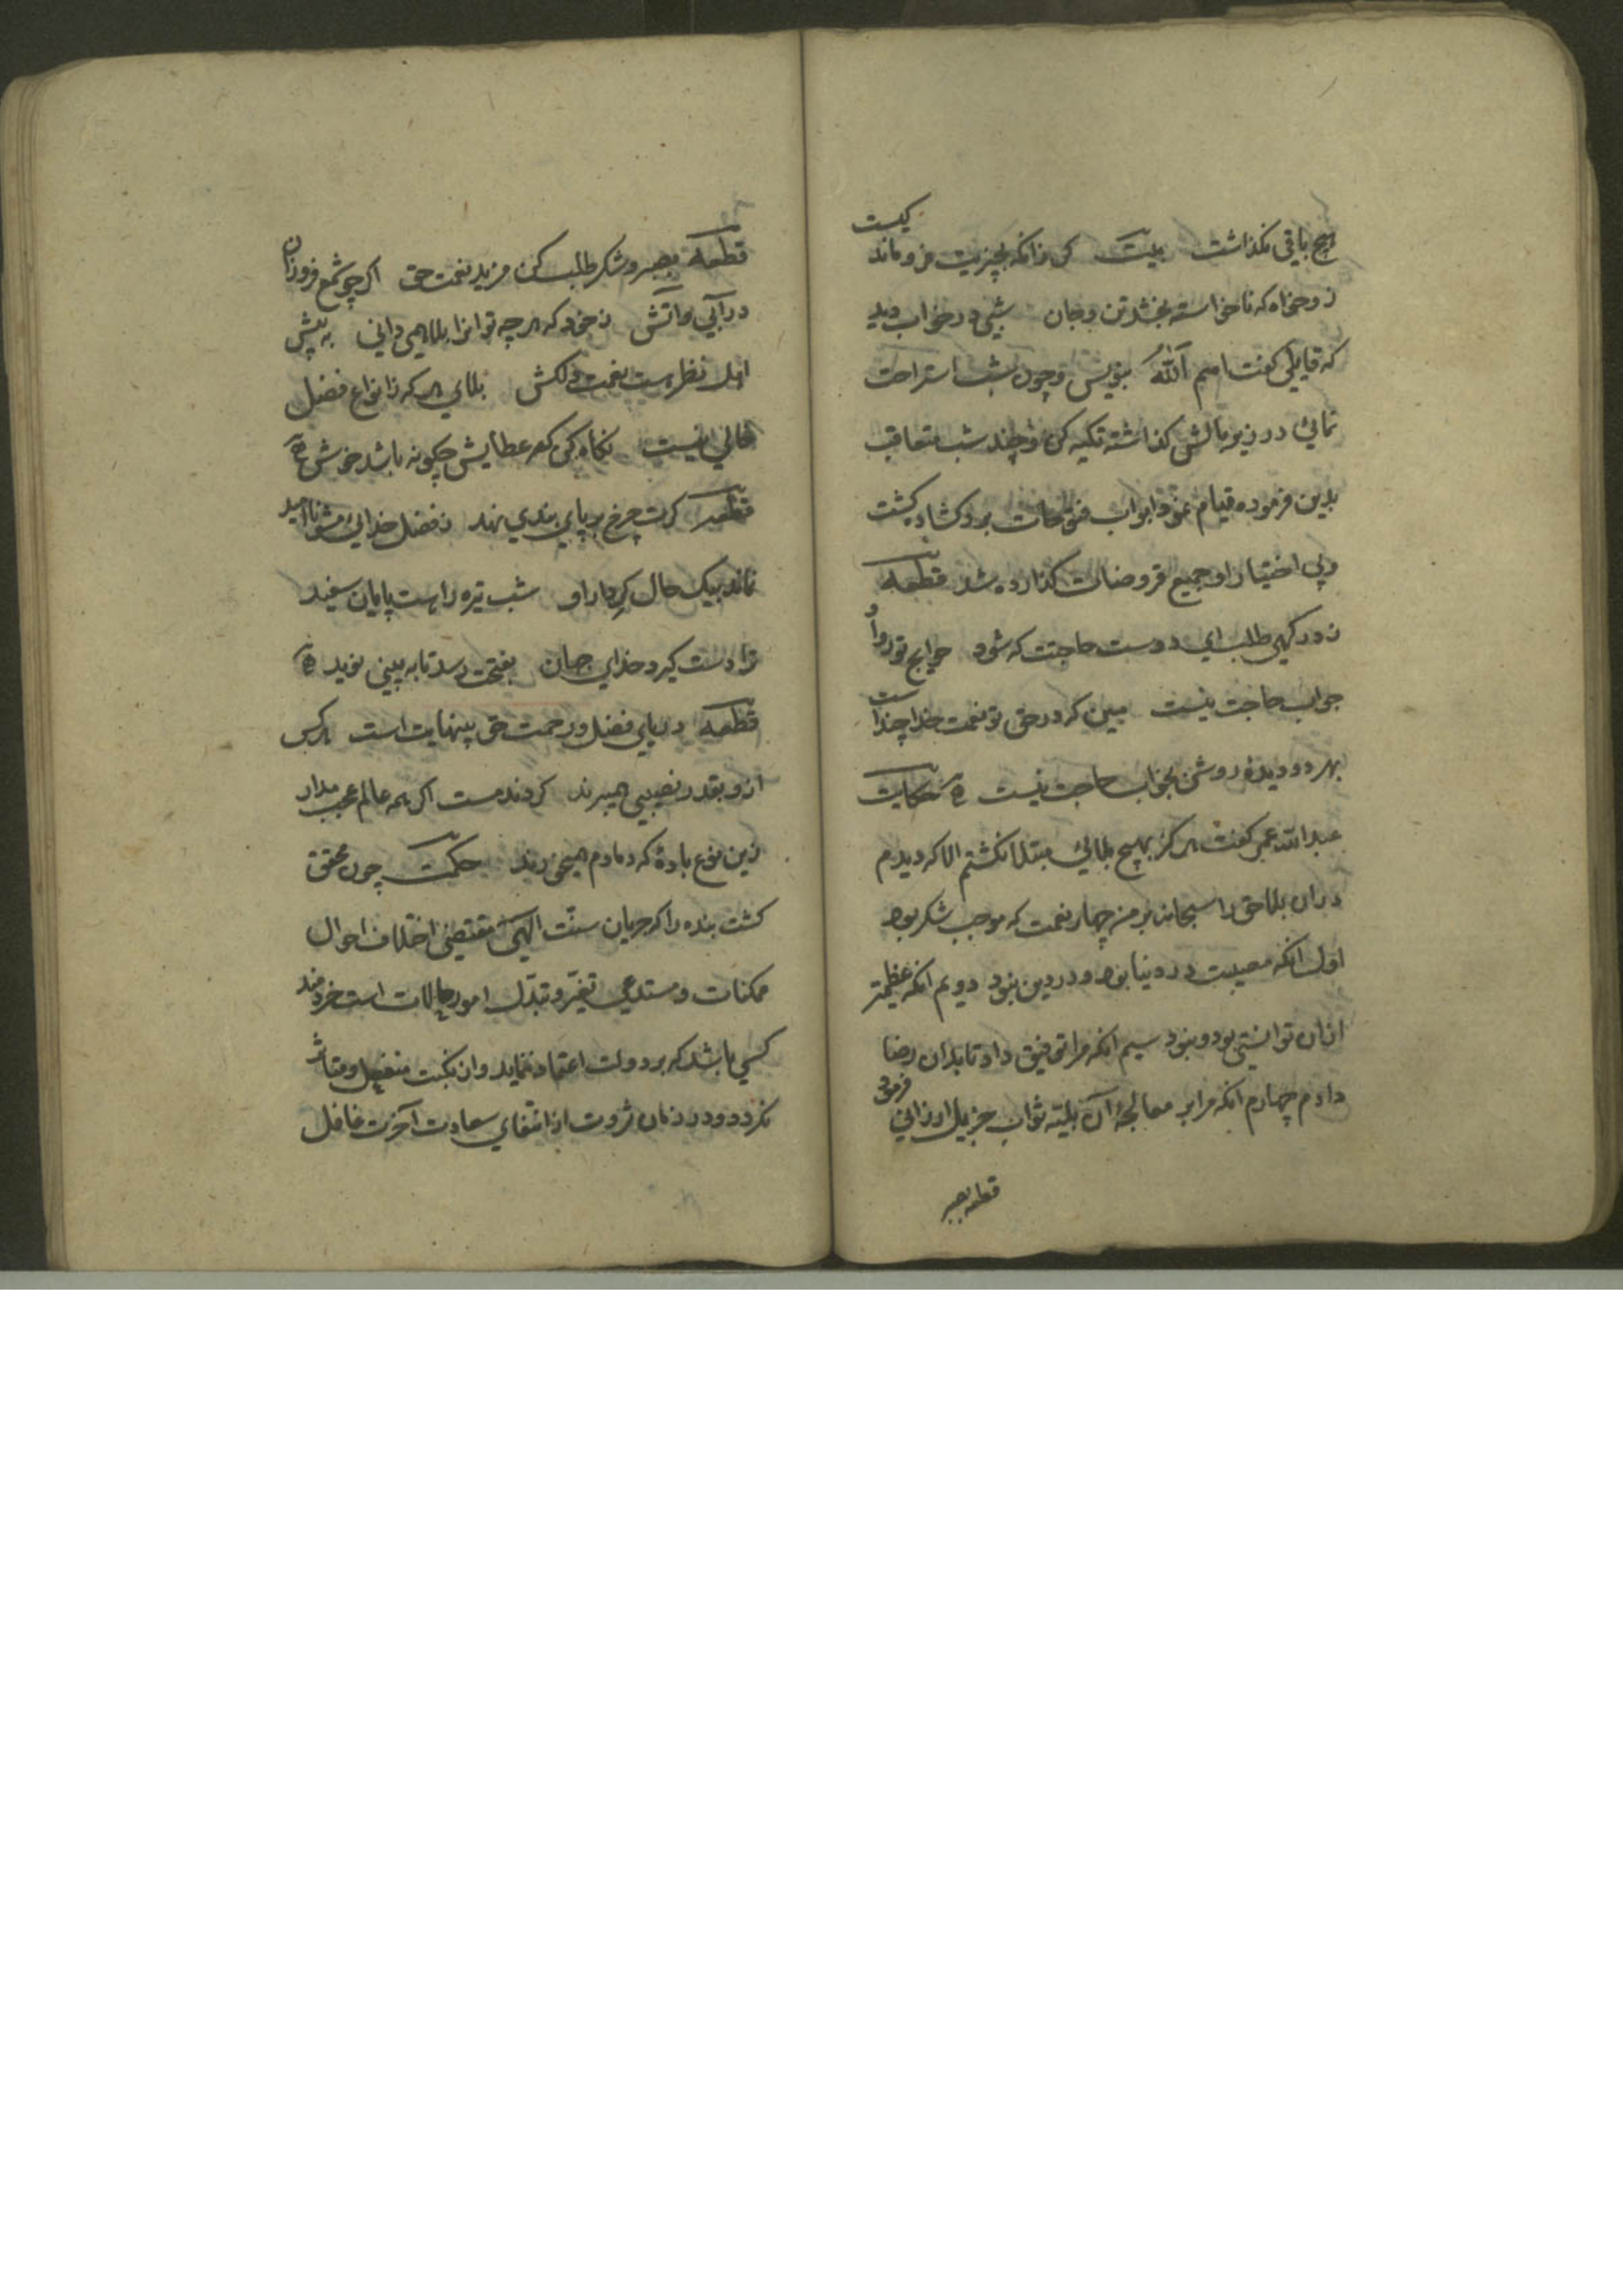 هیچ باقی نکذاشت بیت کر زانکه بچیزیت فروماند کیست
زو خواه که ناخواسته بخشد تن و جان شبی در خواب دید
که قایلی کفت اسم اَللّٰهُ بنویس و چون شب استراحت
نمائی در زیر بالش کذاشته تکیه کن و چند شب متعاقب
بدین فرموده قیام نمود ابواب فتوحات برو کشاده کشت
و بی اختیار او جمیع قروضات کذارده شد قطعه
ز در کهی طلب ای دوست حاجتت که شود حوایج تو روا و
جواب حاجت نیست ببین که در حق تو نعمت خدا چنداست
بهر دو دیده روشن بخواب حاجت نیست حکایت
عبدالله عمر کفت هرکز بهیچ بلائی مبتلا نکشتم الا که دیدم
دران بلا حق را سبحانه بر من چهار نعمت که موجب شکر بود
اول انکه مصیبت در دنیا بود و در دین نبود دویم انکه عظیمتر
ازان توانستی بود و نبود سیم انکه مرا توفیق داد تا بدان رضا
دادم چهارم انکه مرا بر معالجهٔ آن بلیته ثواب جزیل ارزانی فرمود
قطعه بصبر
قطعه بصبر و شکر طلب کن مزید نعمت حق اکر چو شمع فروزان
درآیی در آتش ز خود که هر چه تو انرا بلا همی دانی به پیش
اهل نظر هست نعمت دلکش بلای هر که ز انواع فضل
خالی نیست نکاه کن که عطایش چکونه باشد خوش
قطعه کرت چرخ بر پای بندی نهد ز فضل خدائی مشو ناامید
نماند بیک حال کردار او شب تیره راست پایان سفید
ترا دست کیرد خدای جهان بفتحت رسد تا به بینی نوید
قطعه دریای فضل و رحمت حق بینهایت است هرکس
ازو بقدر نصیبی همیبرند کردند مست اکر همه عالم عجب مدار
زین نوع باده که دمادم همیخورند حکمت چون محقق
کشت بنده را که جریان سنّت الهی مقتضی اختلاف احوال
ممکنات و مستدعی تغیّر و تبدّل امور حالات است خردمند
کسی باشد که بر دولت اعتماد ننماید و از نکبت منفعل و متاثر
نکردد و در زمان ثروت از اقتفای سعادت آخرت غافل